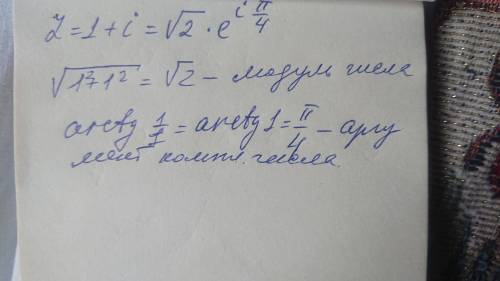 Z=1+i=√2·e^{iπ/4}
√(1²+1²)=√2 – модуль числа
arctg 1/1=arctg1=π/4 – аргу
мент компл. числа.